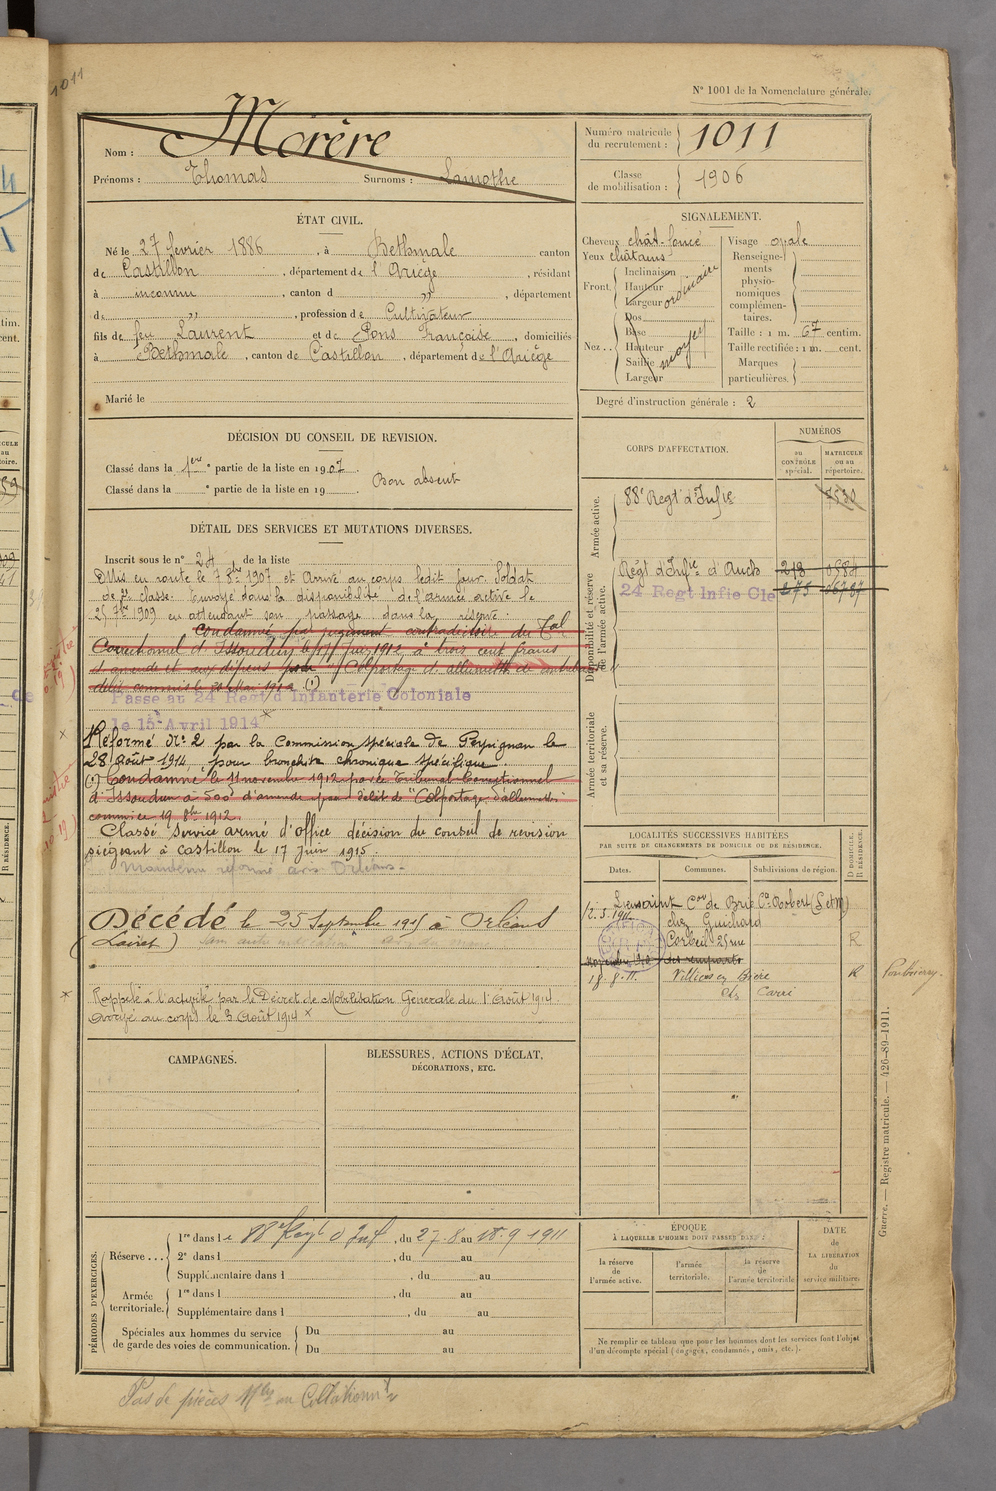 1011
N° 1001 de la Nomenclature générale.
Nom : Morère
Prénoms : Thomas Surnoms : Lamothe
Numéro matricule du recrutement : 1011
Classe de mobilisation : 1906
ÉTAT CIVIL.
Né le 27 février 1886, à Bethmale canton
de Castillon, département de l'Ariège, résidant
à inconnu, canton d „, département
d „, profession de Cultivateur
fils de feu Laurent et de Pons Françoise, domiciliés
à Bethmale, canton de Castillon, département de l'Ariège
Marié le
SIGNALEMENT.
Cheveux chât-foncé
Yeux châtains
Front. Inclinaison Hauteur Largeur ordinaire
Nez .. Dos Base Hauteur Saillie Largeur moyen
Visage ovale
Renseignements physionomiques complémentaires.
Taille : 1 m. 67 centim.
Taille rectifiée : 1 m. cent.
Marques particulières.
Degré d'instruction générale : 2
DÉCISION DU CONSEIL DE REVISION.
Classé dans la 1ère partie de la liste en 1907
Classé dans la e partie de la liste en 19
Bon absent
DÉTAIL DES SERVICES ET MUTATIONS DIVERSES.
Inscrit sous le n° 24 de la liste
Mis en route le 7 8bre 1907 et Arrivé au corps ledit jour. Soldat
de 2e classe. Envoyé dans la disponibilité de l'armée active le
25 7bre 1909 en attendant son passage dans la réserve.
Condamné par jugement contradictoire du Tal
Correctionnel d'Issoudun le juin 1912 à trois cent francs
d'amende et aux dépens pour Colportage d'allumettes de
délit commis le 20 Mai 1912 (1)
Passé au 24 Regt d'Infanterie Coloniale
le 15 Avril 1914
Réformé N° 2 par la Commission spéciale de Perpignan le
28 Août 1914 pour bronchite chronique spécifique.
(1) Condamné le 11 novembre 1912 par le Tribunal Correctionnel
d'Issoudun à 500f d'amende pour délit de "Colportage d'allumettes"
commis le 19 8bre 1912.
Classé Service armé d'office décision du conseil de revision
siégeant à Castillon le 17 Juin 1915.
Maintenu réformé avis Orléans.
Décédé le 25 Septembre 1915 à Orléans
(Loiret)
Rappelé à l'activité par le Décret de Mobilisation Générale du 1er Août 1914.
Arrivé au corps le 3 Août 1914
CORPS D'AFFECTATION.
NUMÉROS
au CONTRÔLE spécial.
MATRICULE ou au répertoire.
Armée active.
88e Regt d'Infie
Disponibilité et réserve de l'armée active.
Régt d'Infie d'Auch 213
24 Regt Infie Cle 275
Armée territoriale et sa réserve.
LOCALITÉS SUCCESSIVES HABITÉES
PAR SUITE DE CHANGEMENTS DE DOMICILE OU DE RÉSIDENCE.
Dates. Communes. Subdivisions de région.
D DOMICILE. R RÉSIDENCE.
Lieusaint Con de Brie Cte Robert (S et M)
12.5.1911 chez Guichard
Corbeil 25 rue R
des remparts
18.8.11. Villiers en Bière R
chez Carri
CAMPAGNES.
BLESSURES, ACTIONS D'ÉCLAT,
DÉCORATIONS, ETC.
PÉRIODES D'EXERCICES.
Réserve ... 1re dans le 88e Regt d'Inf, du 27.8 au 18.9 1911
2e dans l , du au
Supplémentaire dans l , du au
Armée territoriale. 1re dans l , du au
Supplémentaire dans l , du au
Spéciales aux hommes du service de garde des voies de communication. Du au
Du au
ÉPOQUE
À LAQUELLE L'HOMME DOIT PASSER DANS :
la réserve de l'armée active.
l'armée territoriale.
la réserve de l'armée territoriale
DATE de LA LIBÉRATION du service militaire.
Ne remplir ce tableau que pour les hommes dont les services font l'objet
d'un décompte spécial (engagés, condamnés, omis, etc.).
Guerre. — Registre matricule. — 426-89-1911.
Pas de pièces Mles au